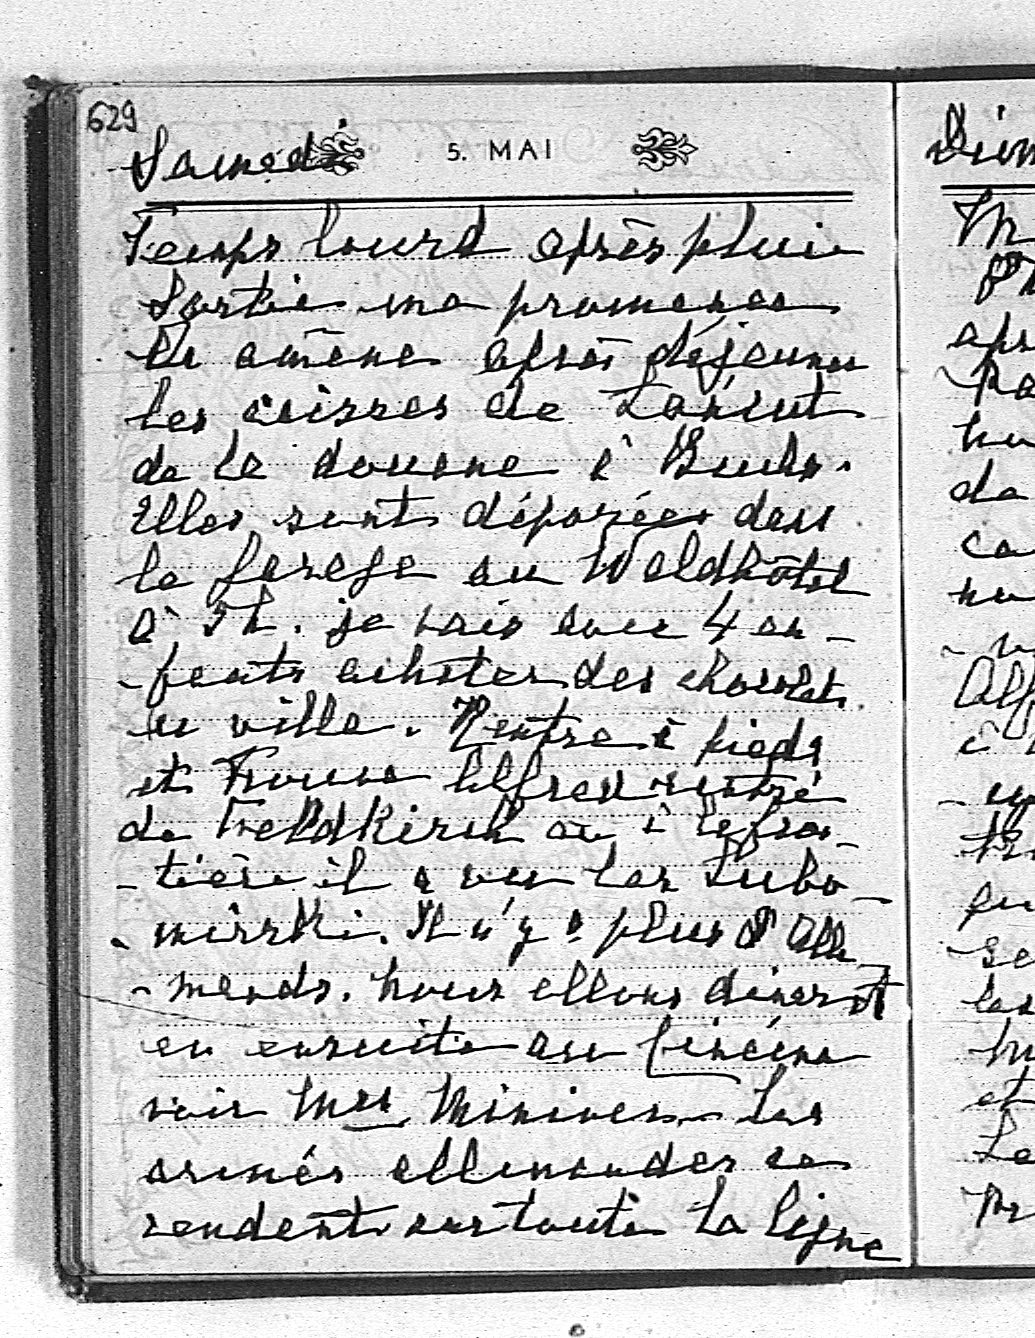 629
Samedi 5. MAI
Temps lourd après pluie
Sortie ma promenea
On amène après déjeuner
les caisses de Lansut
de la douane à Buchs.
Elles sont déposées dans
le garage au Waldhôtel
à 3h. je vais avec 4 en-
-fants acheter des chocolats
en ville. Rentre à pieds
et trouve Alfred rentré
de Feldkirch où à la fron-
-tière il a vu les Lubo-
-mirski. Il n'y a plus d'Alle-
-mands. Nous allons diner et
en ensuite au Cinéma
voir Mrs Miniver. Les
armés allemandes se
rendent sur toute la ligne
Dim
M
apr
de
ca
Alf
à
et
Le